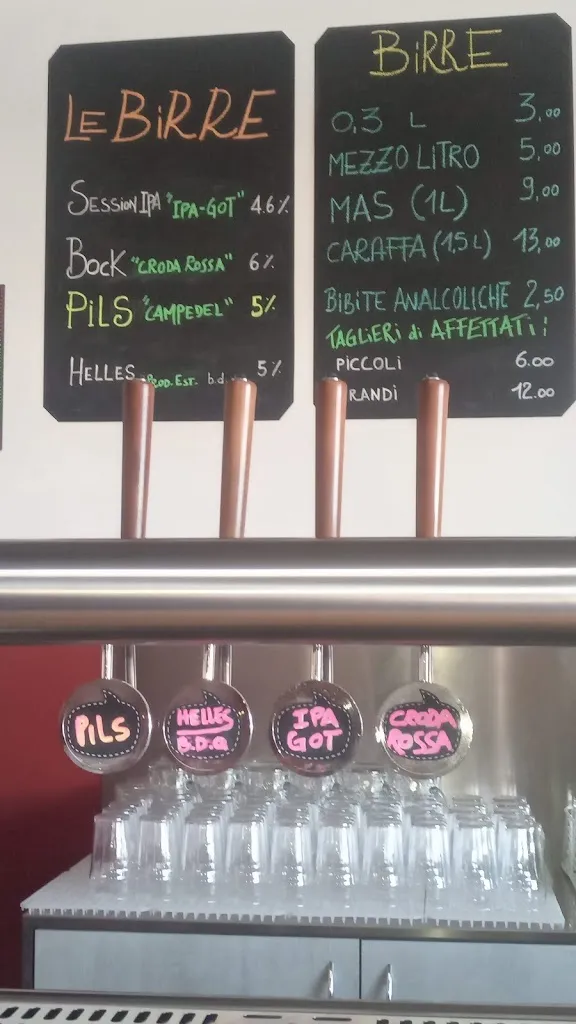 LE BiRRE
SESSION IPA "IPA-GOT" 4.6%
BOCK "CRODA ROSSA" 6%
PiLS "CAMPEDEL" 5%
HELLES PROD. EST. b.d 5%
BiRRE
0,3 L 3,00
MEZZO LITRO 5,00
MAS (1L) 9,00
CARAFFA (1,5L) 13,00
BIBITE ANALCOLICHE 2,50
TAGLIERi di AFFETTATi:
PICCOLI 6.00
RANDI 12.00
PiLS
HELLES
B.D.Q
IPA
GOT
CRODA
ROSSA